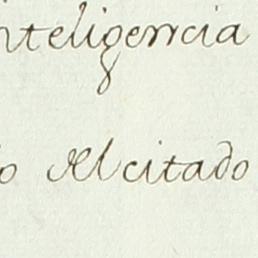 inteligencia
o el citado